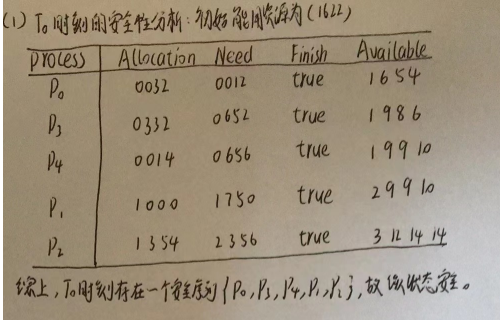 (1) T₀时刻的安全性分析:初始能用资源为(1622)
process Allocation Need Finish Available
P₀ 0032 0012 true 1 6 5 4
P₃ 0332 0652 true 1 9 8 6
P₄ 0014 0656 true 1 9 9 10
P₁ 1000 1750 true 2 9 9 10
P₂ 1354 2356 true 3 12 14 14
综上,T₀时刻存在一个安全序列{P₀,P₃,P₄,P₁,P₂},故该状态安全。